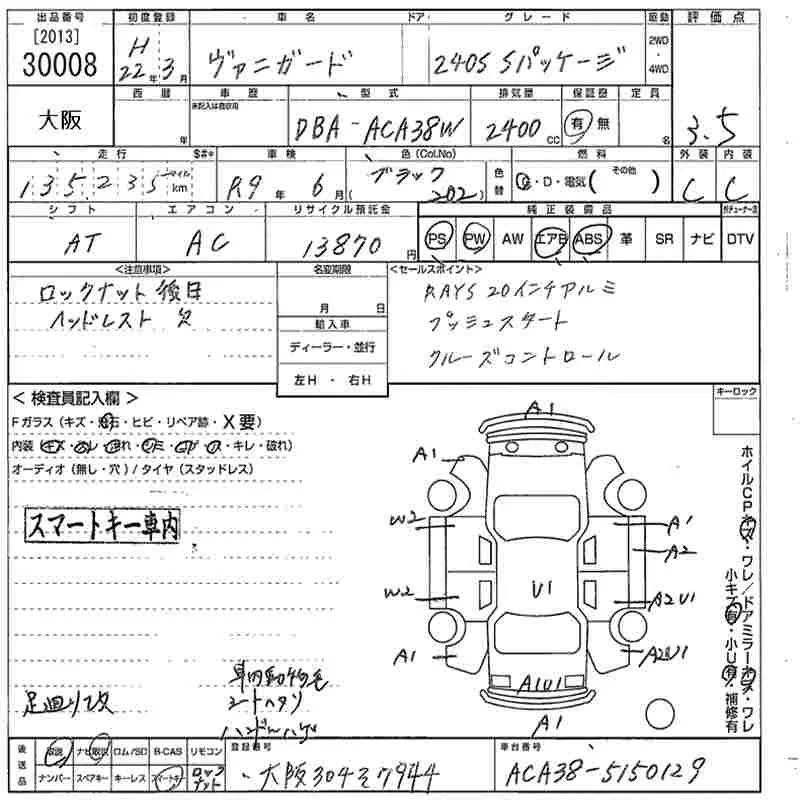 出品番号 初度登録 車名 ドア グレード 駆動 評価点
[2013]
30008
H 22年 3月 ヴァニガード 240S Sパッケージ 2WD・4WD 3.5
大阪
西暦 車歴 型式 排気量 保証書 定員
未記入は自家用
年 DBA-ACA38W 2400cc 有 無 名
走行 $#* 車検 色(Col.No) 色替 燃料 外装 内装
135235 マイル km R9年 6月 ブラック (202) G・D・電気( その他 ) C C
シフト エアコン リサイクル預託金 純正装備品
AT AC 13870円 PS PW AW エアB ABS 革 SR ナビ DTV
<注意事項> 名変期限 <セールスポイント>
ロックナット後日 月 日 RAYS 20インチアルミ
ヘッドレスト欠 輸入車 プッシュスタート
ディーラー・並行 クルーズコントロール
左H・右H
キーロック
<検査員記入欄>
Fガラス(キズ・飛石・ヒビ・リペア跡・X要)
内装(キズ・スレ・汚れ・シミ・コゲ・穴・キレ・破れ)
オーディオ(無し・穴)/タイヤ(スタッドレス)
スマートキー車内
A1
A1
W2 A1
A2
U1
W2 A2U1
A1 A2U1
A1U1
A1
ホイルCPキズ・ワレ/ドアミラーキズ・ワレ
小キズ有・小U有・補修有
足廻り改
車内動物毛
シートヘタリ
ハンドルハゲ
後送品 取説 ナビ取説 ロム/SD B-CAS リモコン 登録番号 車台番号
ナンバー スペアキー キーレス スマートキー ロックナット 大阪304そ7944 ACA38-5150129